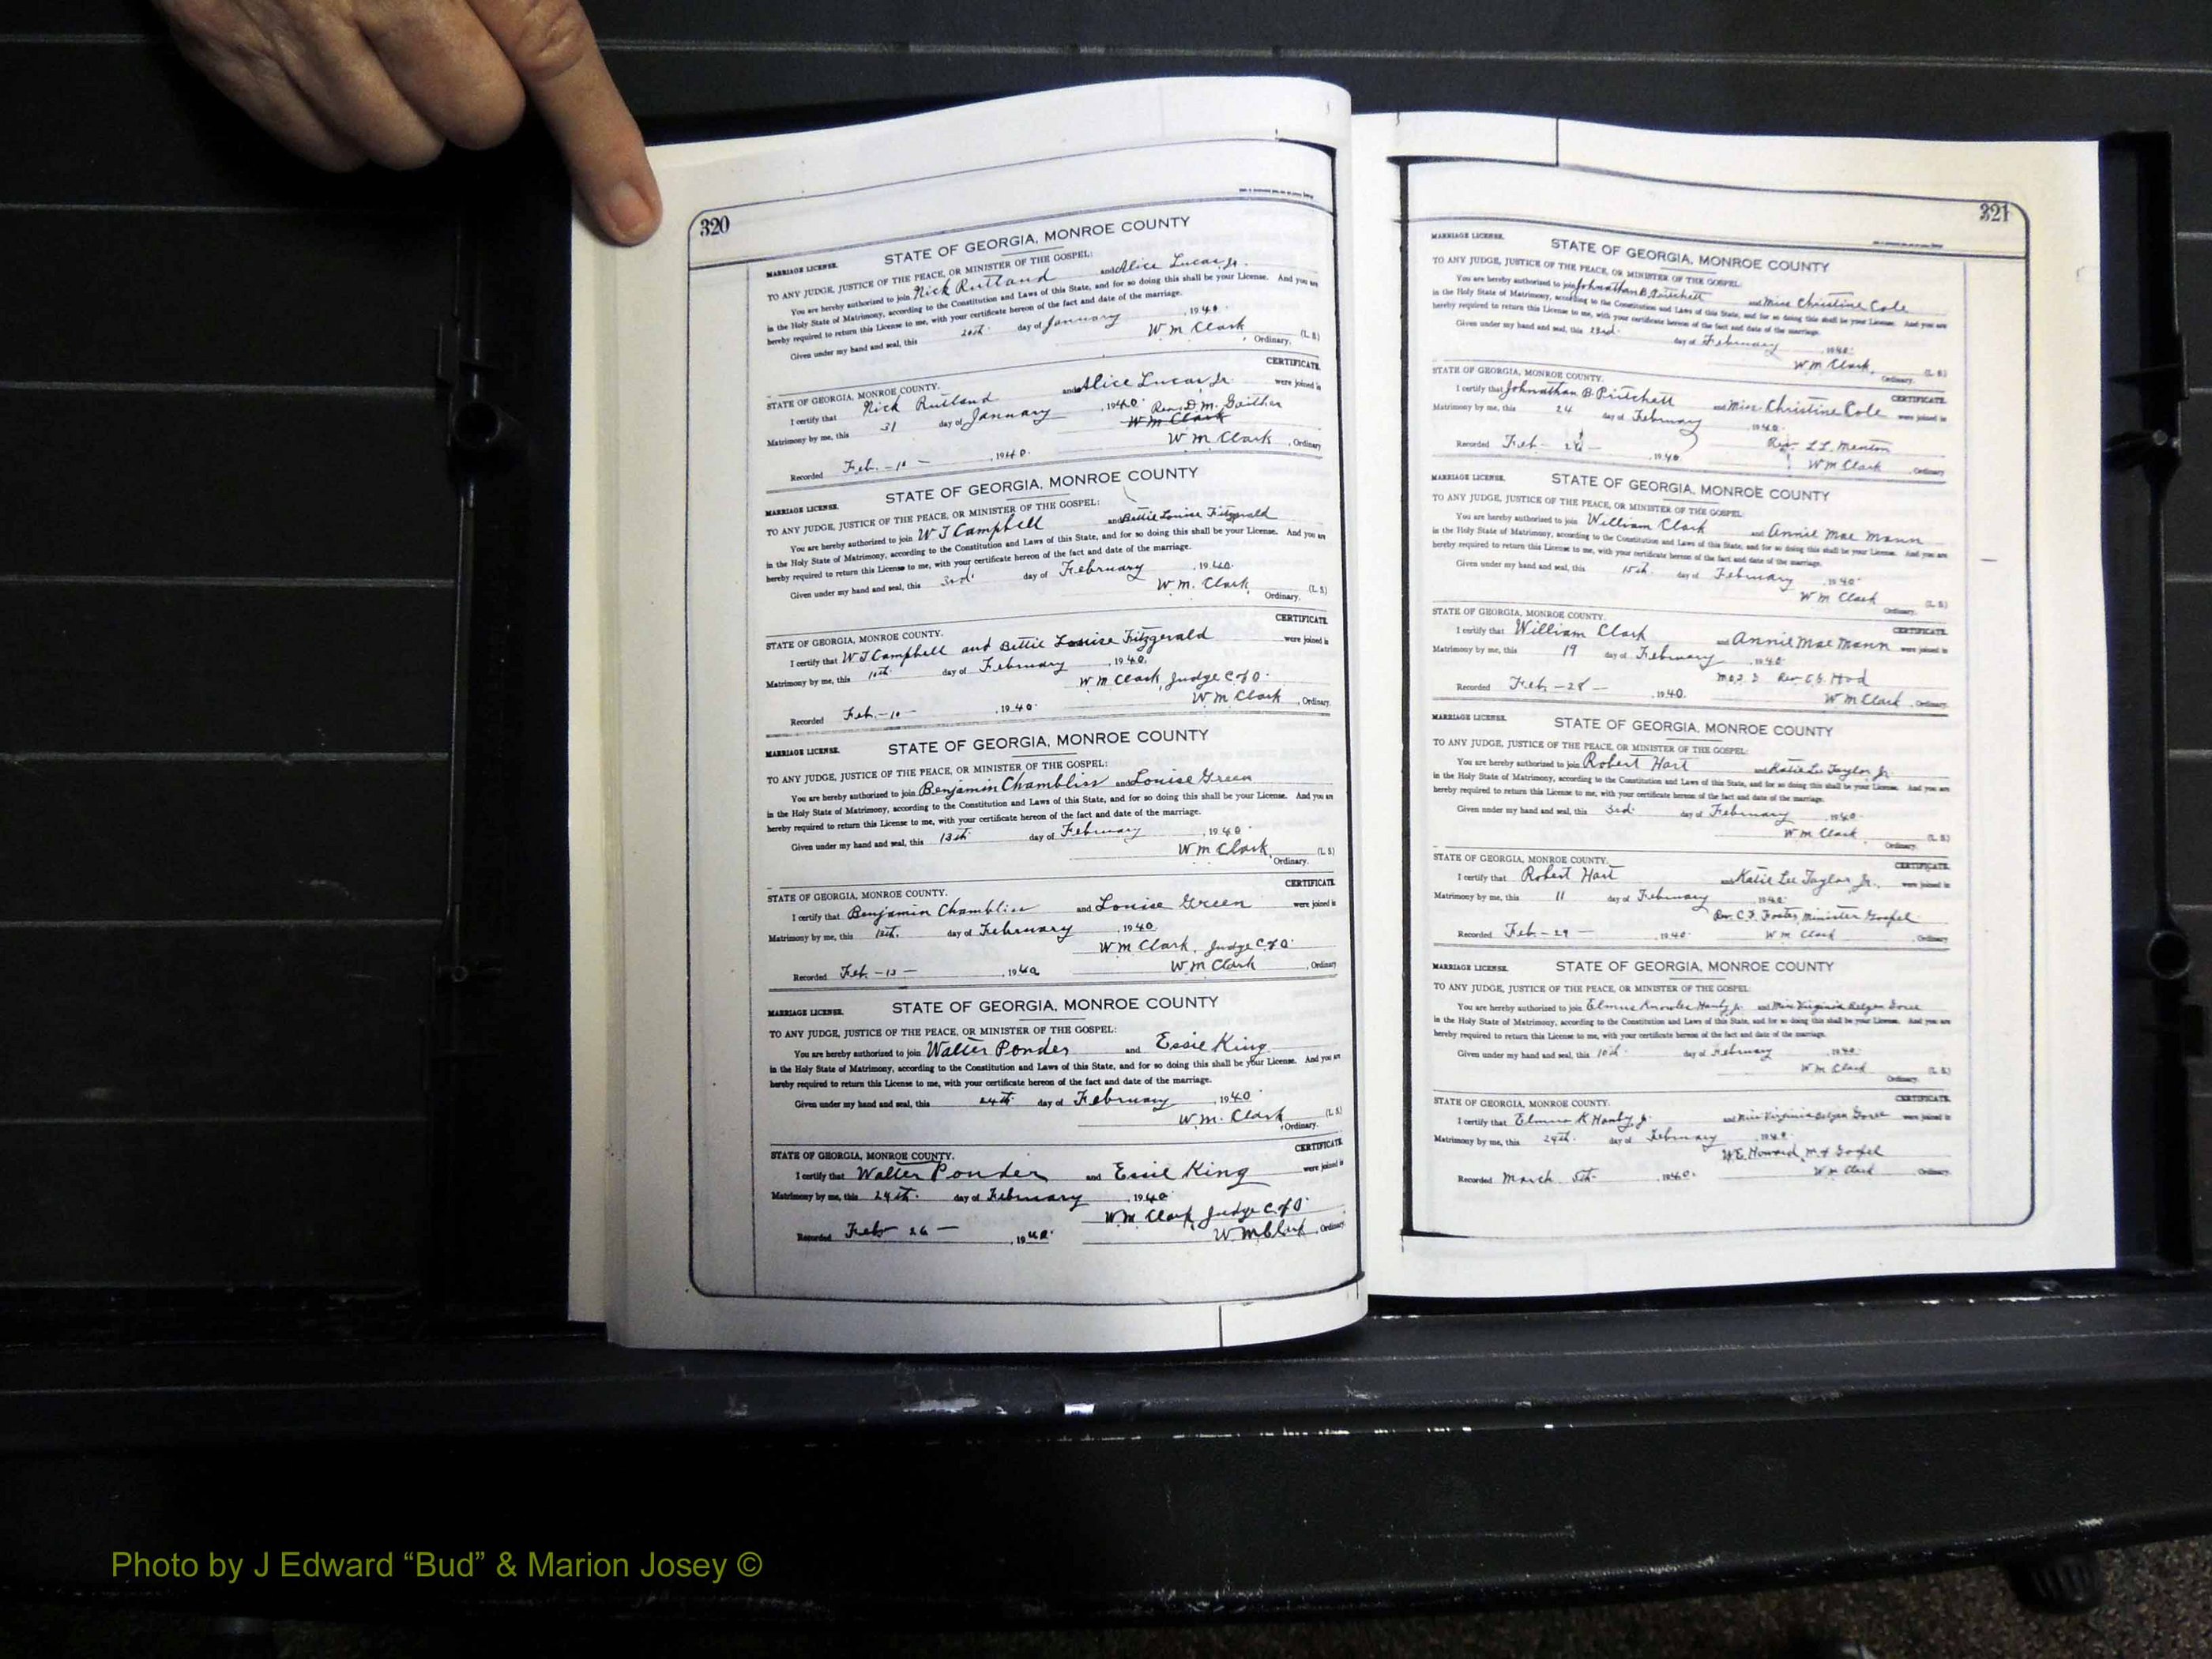 320
STATE OF GEORGIA, MONROE COUNTY
MARRIAGE LICENSE.
TO ANY JUDGE, JUSTICE OF THE PEACE, OR MINISTER OF THE GOSPEL:
You are hereby authorized to join Nick Rutland and Alice Lucas Jr.
in the Holy State of Matrimony, according to the Constitution and Laws of this State, and for so doing this shall be your License. And you are
hereby required to return this License to me, with your certificate hereon of the fact and date of the marriage.
Given under my hand and seal, this day of January, 1940.
W m Clark (L. S.)
Ordinary.
CERTIFICATE.
STATE OF GEORGIA, MONROE COUNTY.
I certify that Nick Rutland and Alice Lucas Jr. were joined in
Matrimony by me, this 31 day of January, 1940. Rev. D. M. Gaither
W m Clark
W m Clark, Ordinary
Recorded Feb. - 10 -, 1940.
STATE OF GEORGIA, MONROE COUNTY
MARRIAGE LICENSE.
TO ANY JUDGE, JUSTICE OF THE PEACE, OR MINISTER OF THE GOSPEL:
You are hereby authorized to join W J Campbell and Bettie Louise Fitzgerald
in the Holy State of Matrimony, according to the Constitution and Laws of this State, and for so doing this shall be your License. And you are
hereby required to return this License to me, with your certificate hereon of the fact and date of the marriage.
Given under my hand and seal, this 3rd day of February, 1940.
W. m. Clark, (L. S.)
Ordinary.
CERTIFICATE.
STATE OF GEORGIA, MONROE COUNTY.
I certify that W J Campbell and Bettie Louise Fitzgerald were joined in
Matrimony by me, this 10th. day of February, 1940.
W m Clark, Judge C of O.
W m Clark, Ordinary.
Recorded Feb. - 10 -, 1940.
STATE OF GEORGIA, MONROE COUNTY
MARRIAGE LICENSE.
TO ANY JUDGE, JUSTICE OF THE PEACE, OR MINISTER OF THE GOSPEL:
You are hereby authorized to join Benjamin Chambliss and Louise Green
in the Holy State of Matrimony, according to the Constitution and Laws of this State, and for so doing this shall be your License. And you are
hereby required to return this License to me, with your certificate hereon of the fact and date of the marriage.
Given under my hand and seal, this 13th day of February, 1940
W m Clark, (L. S.)
Ordinary.
CERTIFICATE.
STATE OF GEORGIA, MONROE COUNTY.
I certify that Benjamin Chambliss and Louise Green were joined in
Matrimony by me, this 13th. day of February, 1940.
W m Clark, Judge C of O.
W m Clark, Ordinary
Recorded Feb. - 13 -, 1940
STATE OF GEORGIA, MONROE COUNTY
MARRIAGE LICENSE.
TO ANY JUDGE, JUSTICE OF THE PEACE, OR MINISTER OF THE GOSPEL:
You are hereby authorized to join Walter Ponder and Essie King
in the Holy State of Matrimony, according to the Constitution and Laws of this State, and for so doing this shall be your License. And you are
hereby required to return this License to me, with your certificate hereon of the fact and date of the marriage.
Given under my hand and seal, this 24th. day of February, 1940.
W. m. Clark (L. S.)
Ordinary.
CERTIFICATE.
STATE OF GEORGIA, MONROE COUNTY.
I certify that Walter Ponder and Essie King were joined in
Matrimony by me, this 24th. day of February, 1940
W m Clark, Judge C of O.
W m Clark, Ordinary.
Recorded Feb 26 -, 1940.
321
STATE OF GEORGIA, MONROE COUNTY
MARRIAGE LICENSE.
TO ANY JUDGE, JUSTICE OF THE PEACE, OR MINISTER OF THE GOSPEL:
You are hereby authorized to join Johnathan B. Pritchett and Miss Christine Cole
in the Holy State of Matrimony, according to the Constitution and Laws of this State, and for so doing this shall be your License. And you are
hereby required to return this License to me, with your certificate hereon of the fact and date of the marriage.
Given under my hand and seal, this 23rd. day of February, 1940.
W m Clark, (L. S.)
Ordinary.
STATE OF GEORGIA, MONROE COUNTY.
CERTIFICATE.
I certify that Johnathan B. Pritchett and Miss Christine Cole were joined in
Matrimony by me, this 24 day of February, 1940.
Rev. L L
Recorded Feb -, 1940. W m Clark, Ordinary
STATE OF GEORGIA, MONROE COUNTY
MARRIAGE LICENSE.
TO ANY JUDGE, JUSTICE OF THE PEACE, OR MINISTER OF THE GOSPEL:
You are hereby authorized to join William Clark and Annie Mae Mann
in the Holy State of Matrimony, according to the Constitution and Laws of this State, and for so doing this shall be your License. And you are
hereby required to return this License to me, with your certificate hereon of the fact and date of the marriage.
Given under my hand and seal, this 15th. day of February, 1940
W m Clark (L. S.)
Ordinary.
STATE OF GEORGIA, MONROE COUNTY.
CERTIFICATE.
I certify that William Clark and Annie Mae Mann were joined in
Matrimony by me, this 19 day of February, 1940
Rev.
Recorded Feb - 28 -, 1940. W m Clark, Ordinary.
STATE OF GEORGIA, MONROE COUNTY
MARRIAGE LICENSE.
TO ANY JUDGE, JUSTICE OF THE PEACE, OR MINISTER OF THE GOSPEL:
You are hereby authorized to join Robert Hart and Katie Lee Taylor Jr.
in the Holy State of Matrimony, according to the Constitution and Laws of this State, and for so doing this shall be your License. And you are
hereby required to return this License to me, with your certificate hereon of the fact and date of the marriage.
Given under my hand and seal, this 3rd. day of February, 1940.
W m Clark, (L. S.)
Ordinary.
STATE OF GEORGIA, MONROE COUNTY.
CERTIFICATE.
I certify that Robert Hart and Katie Lee Taylor Jr., were joined in
Matrimony by me, this 11 day of February, 1940
Rev. C. F. Foster, Minister Gospel
Recorded Feb - 29 -, 1940. W m Clark, Ordinary
STATE OF GEORGIA, MONROE COUNTY
MARRIAGE LICENSE.
TO ANY JUDGE, JUSTICE OF THE PEACE, OR MINISTER OF THE GOSPEL:
You are hereby authorized to join Elmus Knowles Jr. and Miss Virginia
in the Holy State of Matrimony, according to the Constitution and Laws of this State, and for so doing this shall be your License. And you are
hereby required to return this License to me, with your certificate hereon of the fact and date of the marriage.
Given under my hand and seal, this 10th. day of February, 1940.
W m Clark (L. S.)
Ordinary.
STATE OF GEORGIA, MONROE COUNTY.
CERTIFICATE.
I certify that Elmus K Jr. and Miss Virginia were joined in
Matrimony by me, this 24th. day of February, 1940.
W. E. Howard, M of Gospel
Recorded March 5th., 1940. W m Clark, Ordinary.
Photo by J Edward “Bud” & Marion Josey ©